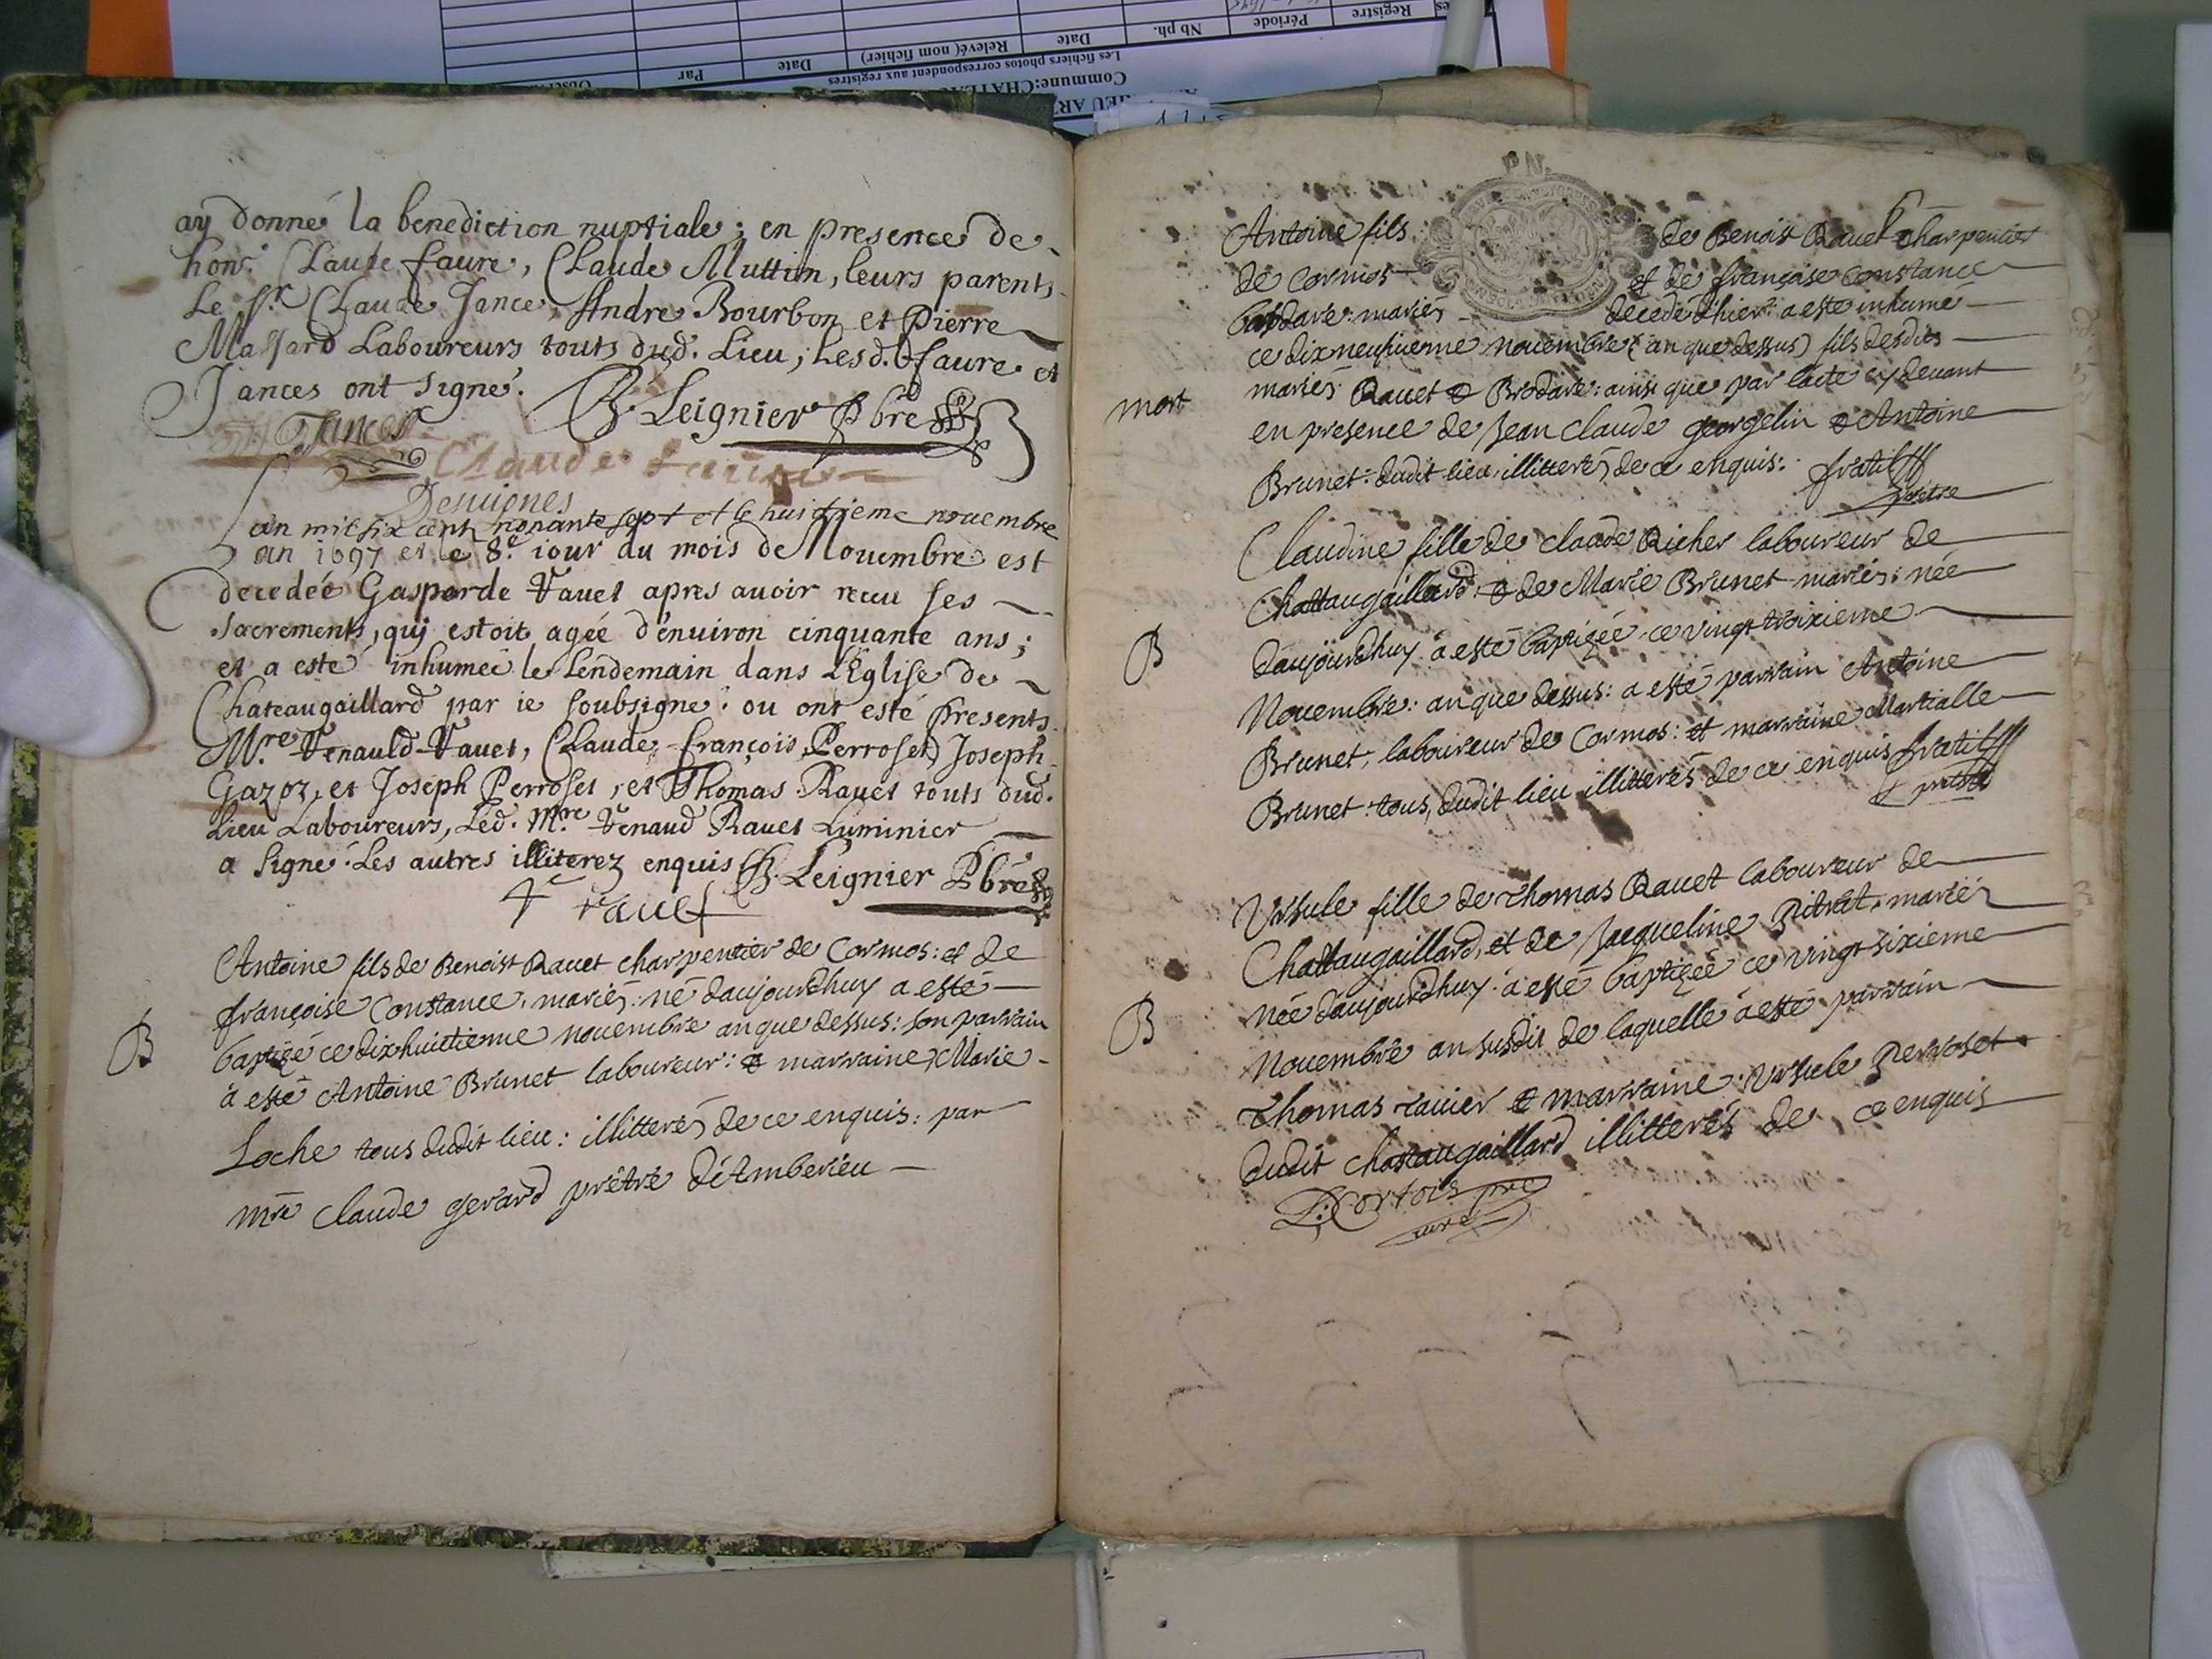 ay donné la benediction nuptiale; en presence de
honr. Claude faure, Claude Muttin, leurs parents
Le Sr. Claude Jance, Andre Bourbon et Pierre
Massard Laboureurs touts dud. Lieu; Lesd. faure et
Jances ont signé. Leignier Pbre
Jances
Claude
Desuignes
an mil six cent nonante sept et le huictieme nouembre
an 1697 et le 8e iour du mois de Nouembre est
decedée Gasparde Rauet apres auoir recu ses
sacrements, quj estoit agée d'enuiron cinquante ans;
et a esté inhumeé le Lendemain dans L'Eglise de
Chateaugaillard par ie soubsigné: ou ont esté presents
Mre. Renauld Rauet, Claude françois Perroset, Joseph
Gazoz, et Joseph Perroset, et Thomas Rauet touts dud.
Lieu Laboureurs, Led. Mre Renaud Rauet Luminier
a signé. Les autres illiterez enquis Leignier Pbre
rauet
Antoine fils de Benoist Rauet charpentier de Cormos: et de
françoise Constance, mariés: né daujourdhuy a esté
B
baptizé ce dixhuitieme nouembre an que dessus: son parrain
a esté Antoine Brunet laboureur: & marraine Marie
Loche tous dudit lieu: illitterés de ce enquis: par
mre claude gerard prêtre d'Amberieu
Antoine fils de Benoist Rauet charpentier
de Cormos et de françoise Constance
mariés decedé d'hier: a esté inhumé
ce dixneufuieme nouembre (an que dessus) fils desdits
mariés Rauet & : ainsi que par l'acte cy deuant
mort
en presence de Jean claude georgelin & Antoine
Brunet: dudit lieu, illitterés de ce enquis:
prêtre
Claudine fille de claude Richer laboureur de
Chattaugaillard: & de Marie Brunet mariés: née
B
daujourdhuy a esté baptizée ce vingt troixieme
Nouembre: an que dessus: a esté parrain Antoine
Brunet, laboureur de Cormos: et marraine Martialle
Brunet: tous, dudit lieu illitterés de ce enquis
Ursule fille de Thomas Rauet laboureur de
Chattaugaillard, et de Jacqueline mariés
B
née daujourdhuy: a esté baptizée ce vingt sixieme
Nouembre an susdit de laquelle a esté parrain
Thomas rauier & marraine: Ursule Perroset
dudit chataugaillard illitterés de ce enquis
Cortois pre
curé
Commune:CHATEAU
Les fichiers photos correspondent aux registres
Registre
Période
Nb ph.
Date
Relevé( nom fichier)
Date
Par